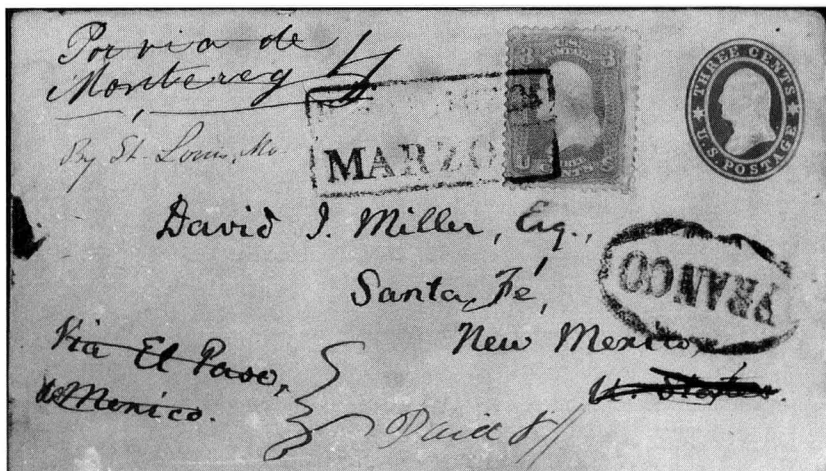 Por via de
Monterey
By St. Louis, Mo.
MARZO
3 U.S. 3
POSTAGE
U THREE S
CENTS
THREE CENTS
U.S. POSTAGE
David J. Miller, Esq.,
Santa, Fé,
New Mexico,
U. States.
FRANCO
Via El Paso,
de Mexico.
Paid